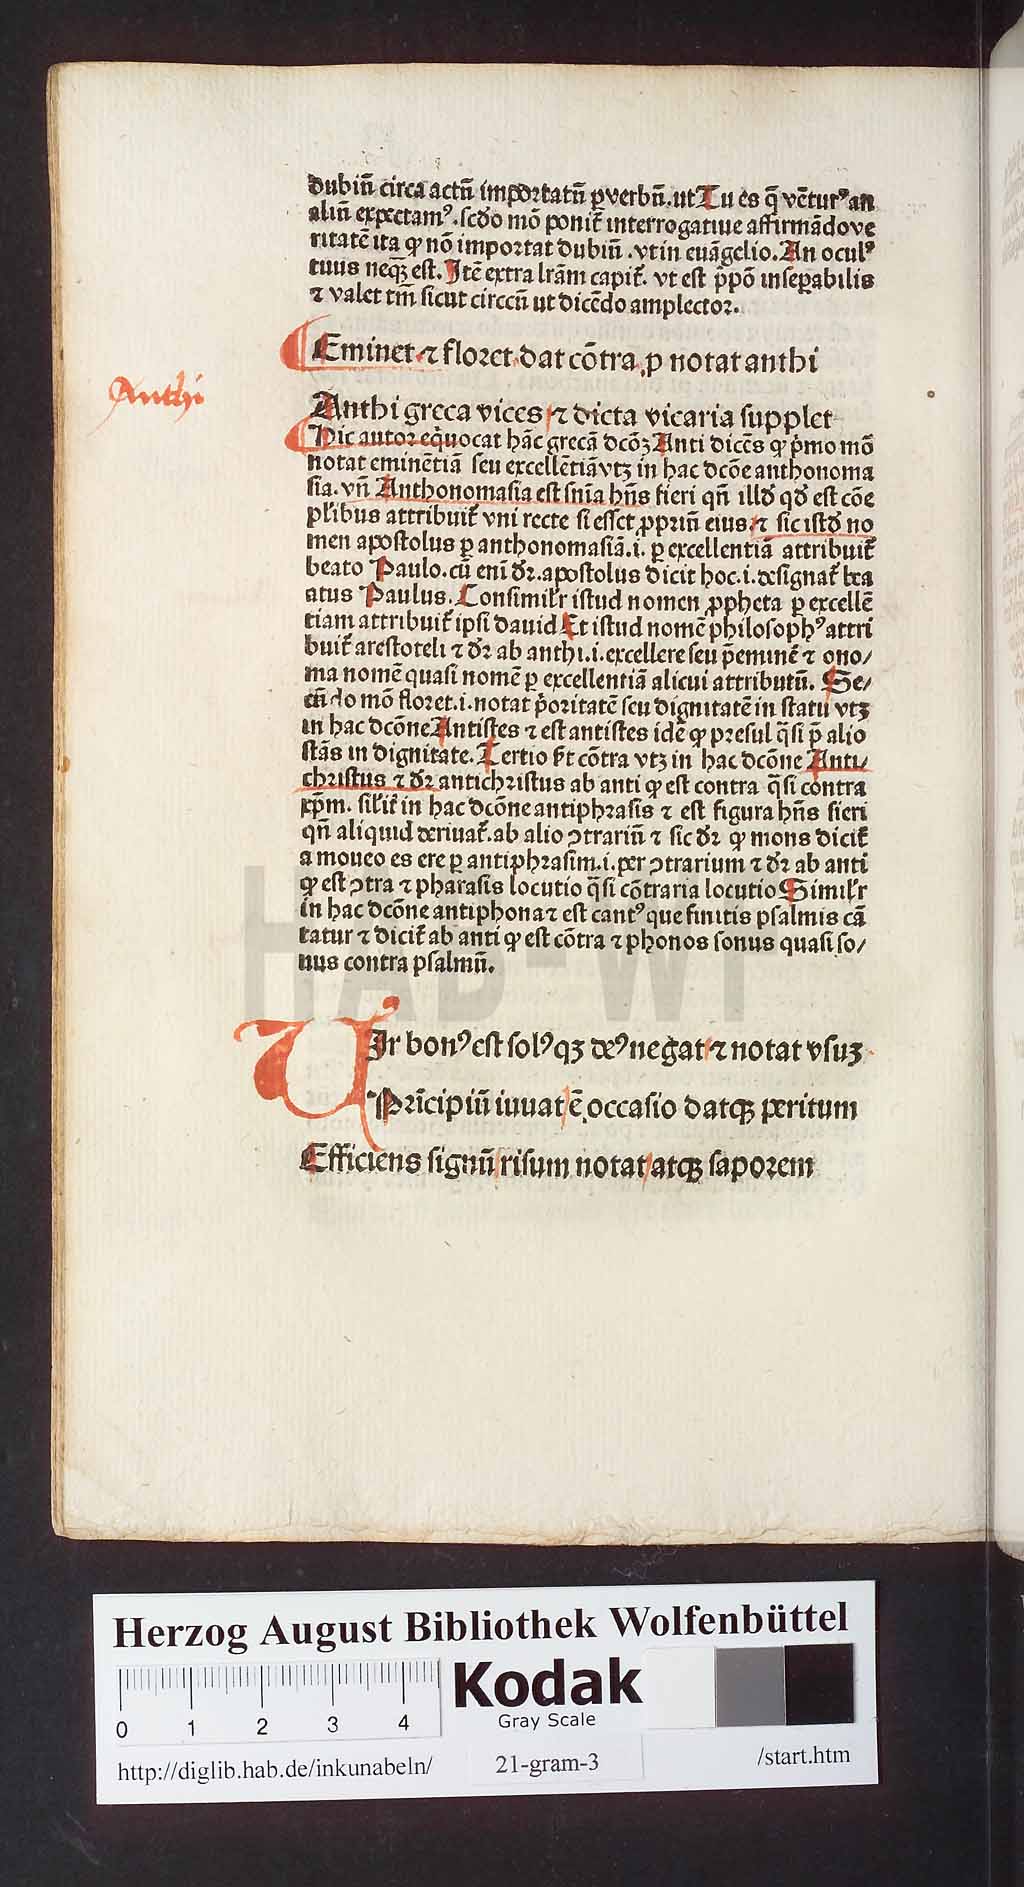 dubiū circa actū importatū ꝑ verbū. ut Tu es q̄ vēturꝰ an
aliū expectamꝰ. scd̄o mō ponit̄ interrogatiue affirmādo ve
ritatē ita ꝙ nō importat dubiū .vt in euāgelio. An oculꝰ
tuus neqꝫ est. Itē extra lrām capit̄. vt est p̄pō inseꝑabilis
⁊ valet tm̄ sicut circcū ut dicēdo amplector.
Eminet ⁊ floret dat cōtra ꝓ notat anthi
Anthi
Anthi greca vices ⁊ dicta vicaria supplet
Hic autor equocat hāc grecā dcōꝫ Anti dicēs ꝙ p̄mo mō
notat eminētiā seu excellētiā vtꝫ in hac dcōe anthonoma
sia. vn̄ Anthonomasia est sn̄ia hn̄s fieri qn̄ illd̄ qd̄ est cōe
pl̄ibus attribuit̄ vni recte si esset ꝓpriū eius ⁊ sic istd̄ no
men apostolus ꝑ anthonomasiā .i. ꝑ excellentiā attribuit̄
beato Paulo. cū eni d̄r. apostolus dicit hoc .i. designat̄ bea
atus Paulus. Consimilr̄ istud nomen ꝓpheta ꝑ excellē
tiam attribuit̄ ipsi dauid Et istud nomē philosophꝰ attri
buit̄ arestoteli ⁊ d̄r ab anthi .i. excellere seu p̄eminē ⁊ ono/
ma nomē quasi nomē ꝑ excellentiā alicui attributū. Se/
cū do mō floret .i. notat p̄oritatē seu dignitatē in statu vtꝫ
in hac dcōne Antistes ⁊ est antistes idē ꝙ presul q̄si p̄ alio
stās in dignitate. Tertio ft̄ cōtra vtꝫ in hac dcōne Anti/
christus ⁊ d̄r antichristus ab anti ꝙ est contra q̄si contra
xp̄m. silit̄ in hac dcōne antiphrasis ⁊ est figura hn̄s fieri
qn̄ aliquid deriuat̄. ab alio ↄtrariū ⁊ sic d̄r ꝙ mons dicit̄
a moueo es ere ꝑ antiphrasim .i. per ↄtrarium ⁊ d̄r ab anti
ꝙ est ↄtra ⁊ pharasis locutio q̄si cōtraria locutio Similr̄
in hac dcōne antiphona ⁊ est cantꝰ que finitis psalmis cā
tatur ⁊ dicit̄ ab anti ꝙ est cōtra ⁊ phonos sonus quasi so/
nus contra psalmū.
VIr bonꝰ est solꝰ qꝫ deꝰ negat ⁊ notat vsuꝫ
Prīcipiū iuuat ē occasio datqꝫ peritum
Efficiens signū risum notat atqꝫ saporem
HAB-WF
Herzog August Bibliothek Wolfenbüttel
0 1 2 3 4
Kodak
Gray Scale
http://diglib.hab.de/inkunabeln/
21-gram-3
/start.htm